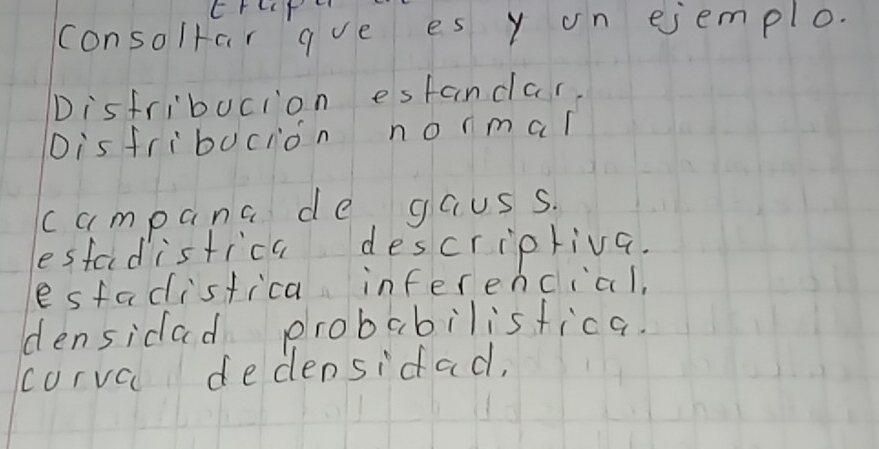 Consoltar que es y un ejemplo.
Distribucion estandar.
Distribución normal
campana de gauss.
estadistica descriptiva.
estadistica inferencial.
densidad probabilistica.
curva de densidad.